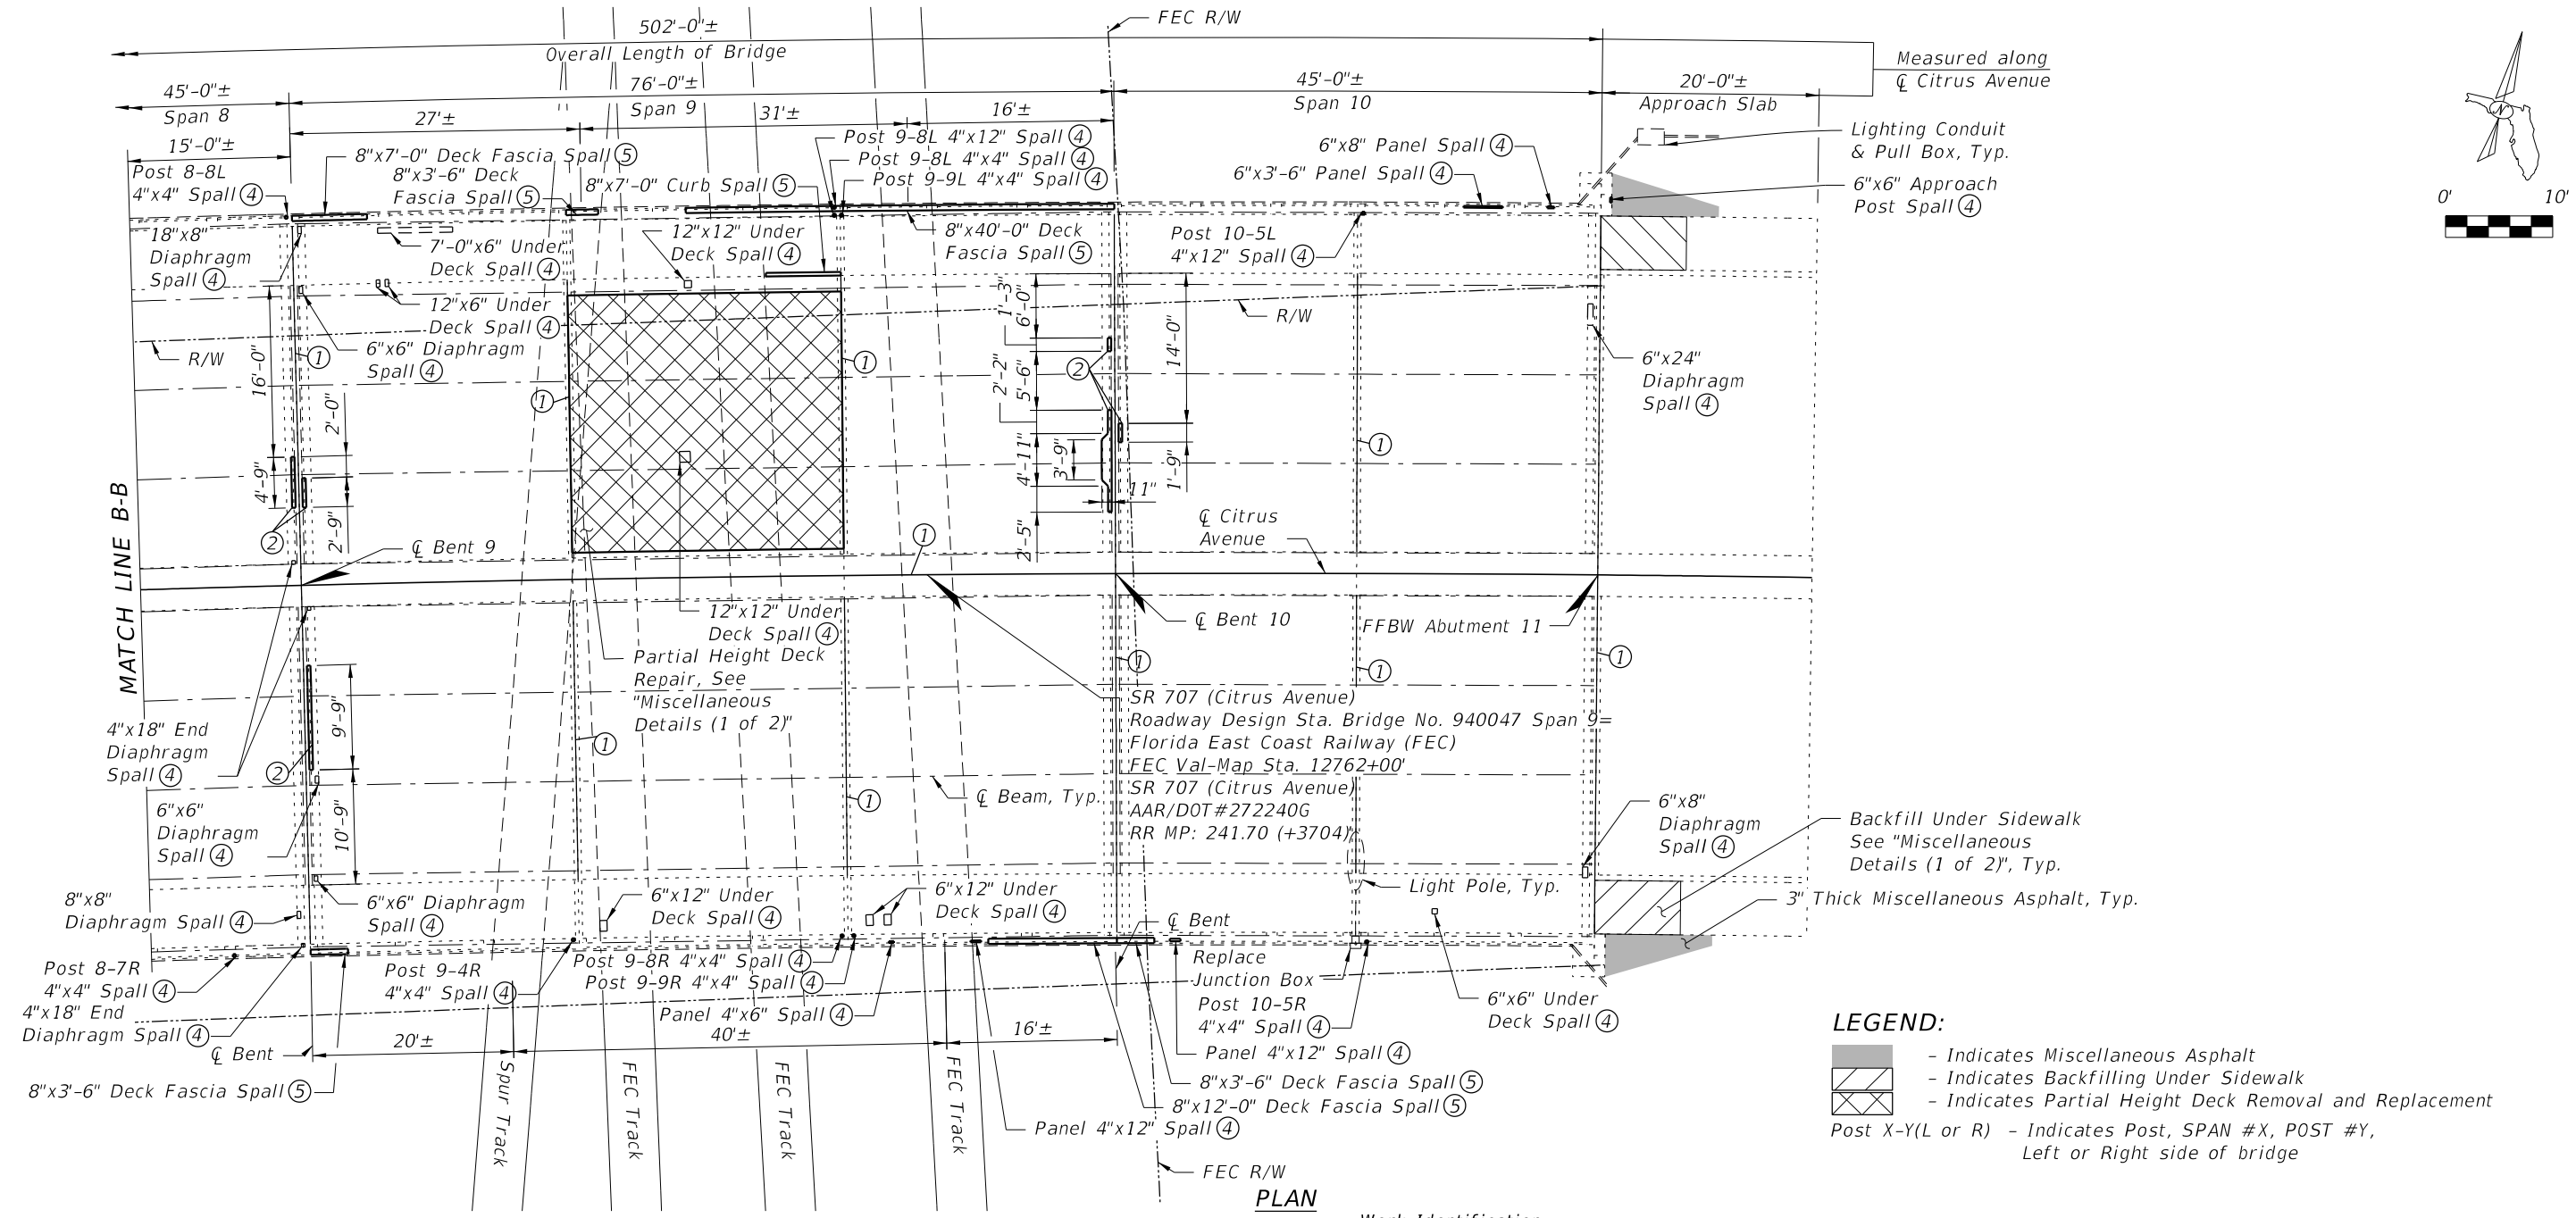 502'-0"±
Overall Length of Bridge
FEC R/W
Measured along
℄ Citrus Avenue
45'-0"±
Span 8
76'-0"±
Span 9
45'-0"±
Span 10
20'-0"±
Approach Slab
27'±
31'±
16'±
15'-0"±
Post 8-8L
4"x4" Spall ④
8"x7'-0" Deck Fascia Spall ⑤
8"x3'-6" Deck
Fascia Spall ⑤
8"x7'-0" Curb Spall ⑤
Post 9-8L 4"x12" Spall ④
Post 9-8L 4"x4" Spall ④
Post 9-9L 4"x4" Spall ④
6"x8" Panel Spall ④
6"x3'-6" Panel Spall ④
Lighting Conduit
& Pull Box, Typ.
6"x6" Approach
Post Spall ④
N
0'
10'
18"x8"
Diaphragm
Spall ④
7'-0"x6" Under
Deck Spall ④
12"x12" Under
Deck Spall ④
8"x40'-0" Deck
Fascia Spall ⑤
Post 10-5L
4"x12" Spall ④
12"x6" Under
Deck Spall ④
R/W
6"x6" Diaphragm
Spall ④
①
①
①
R/W
6"x24"
Diaphragm
Spall ④
16'-0"
4'-9"
2'-0"
2'-9"
②
1'-3"
6'-0"
2'-2"
5'-6"
4'-11"
3'-9"
2'-5"
11"
14'-0"
1'-9"
②
①
MATCH LINE B-B
℄ Bent 9
①
℄ Citrus
Avenue
12"x12" Under
Deck Spall ④
℄ Bent 10
FFBW Abutment 11
Partial Height Deck
Repair, See
"Miscellaneous
Details (1 of 2)"
①
①
①
①
SR 707 (Citrus Avenue)
Roadway Design Sta. Bridge No. 940047 Span 9=
Florida East Coast Railway (FEC)
FEC Val-Map Sta. 12762+00'
SR 707 (Citrus Avenue)
AAR/DOT#272240G
RR MP: 241.70 (+3704)
4"x18" End
Diaphragm
Spall ④
②
9'-9"
10'-9"
℄ Beam, Typ.
①
6"x6"
Diaphragm
Spall ④
6"x8"
Diaphragm
Spall ④
Backfill Under Sidewalk
See "Miscellaneous
Details (1 of 2)", Typ.
3" Thick Miscellaneous Asphalt, Typ.
8"x8"
Diaphragm Spall ④
6"x6" Diaphragm
Spall ④
6"x12" Under
Deck Spall ④
6"x12" Under
Deck Spall ④
Light Pole, Typ.
℄ Bent
Post 8-7R
4"x4" Spall ④
Post 9-4R
4"x4" Spall ④
Post 9-8R 4"x4" Spall ④
Post 9-9R 4"x4" Spall ④
Panel 4"x6" Spall ④
Replace
Junction Box
Post 10-5R
4"x4" Spall ④
6"x6" Under
Deck Spall ④
4"x18" End
Diaphragm Spall ④
℄ Bent
20'±
40'±
16'±
Panel 4"x12" Spall ④
8"x3'-6" Deck Fascia Spall ⑤
8"x3'-6" Deck Fascia Spall ⑤
8"x12'-0" Deck Fascia Spall ⑤
Panel 4"x12" Spall ④
Spur Track
FEC Track
FEC Track
FEC Track
FEC R/W
PLAN
LEGEND:
- Indicates Miscellaneous Asphalt
- Indicates Backfilling Under Sidewalk
- Indicates Partial Height Deck Removal and Replacement
Post X-Y(L or R) - Indicates Post, SPAN #X, POST #Y,
Left or Right side of bridge